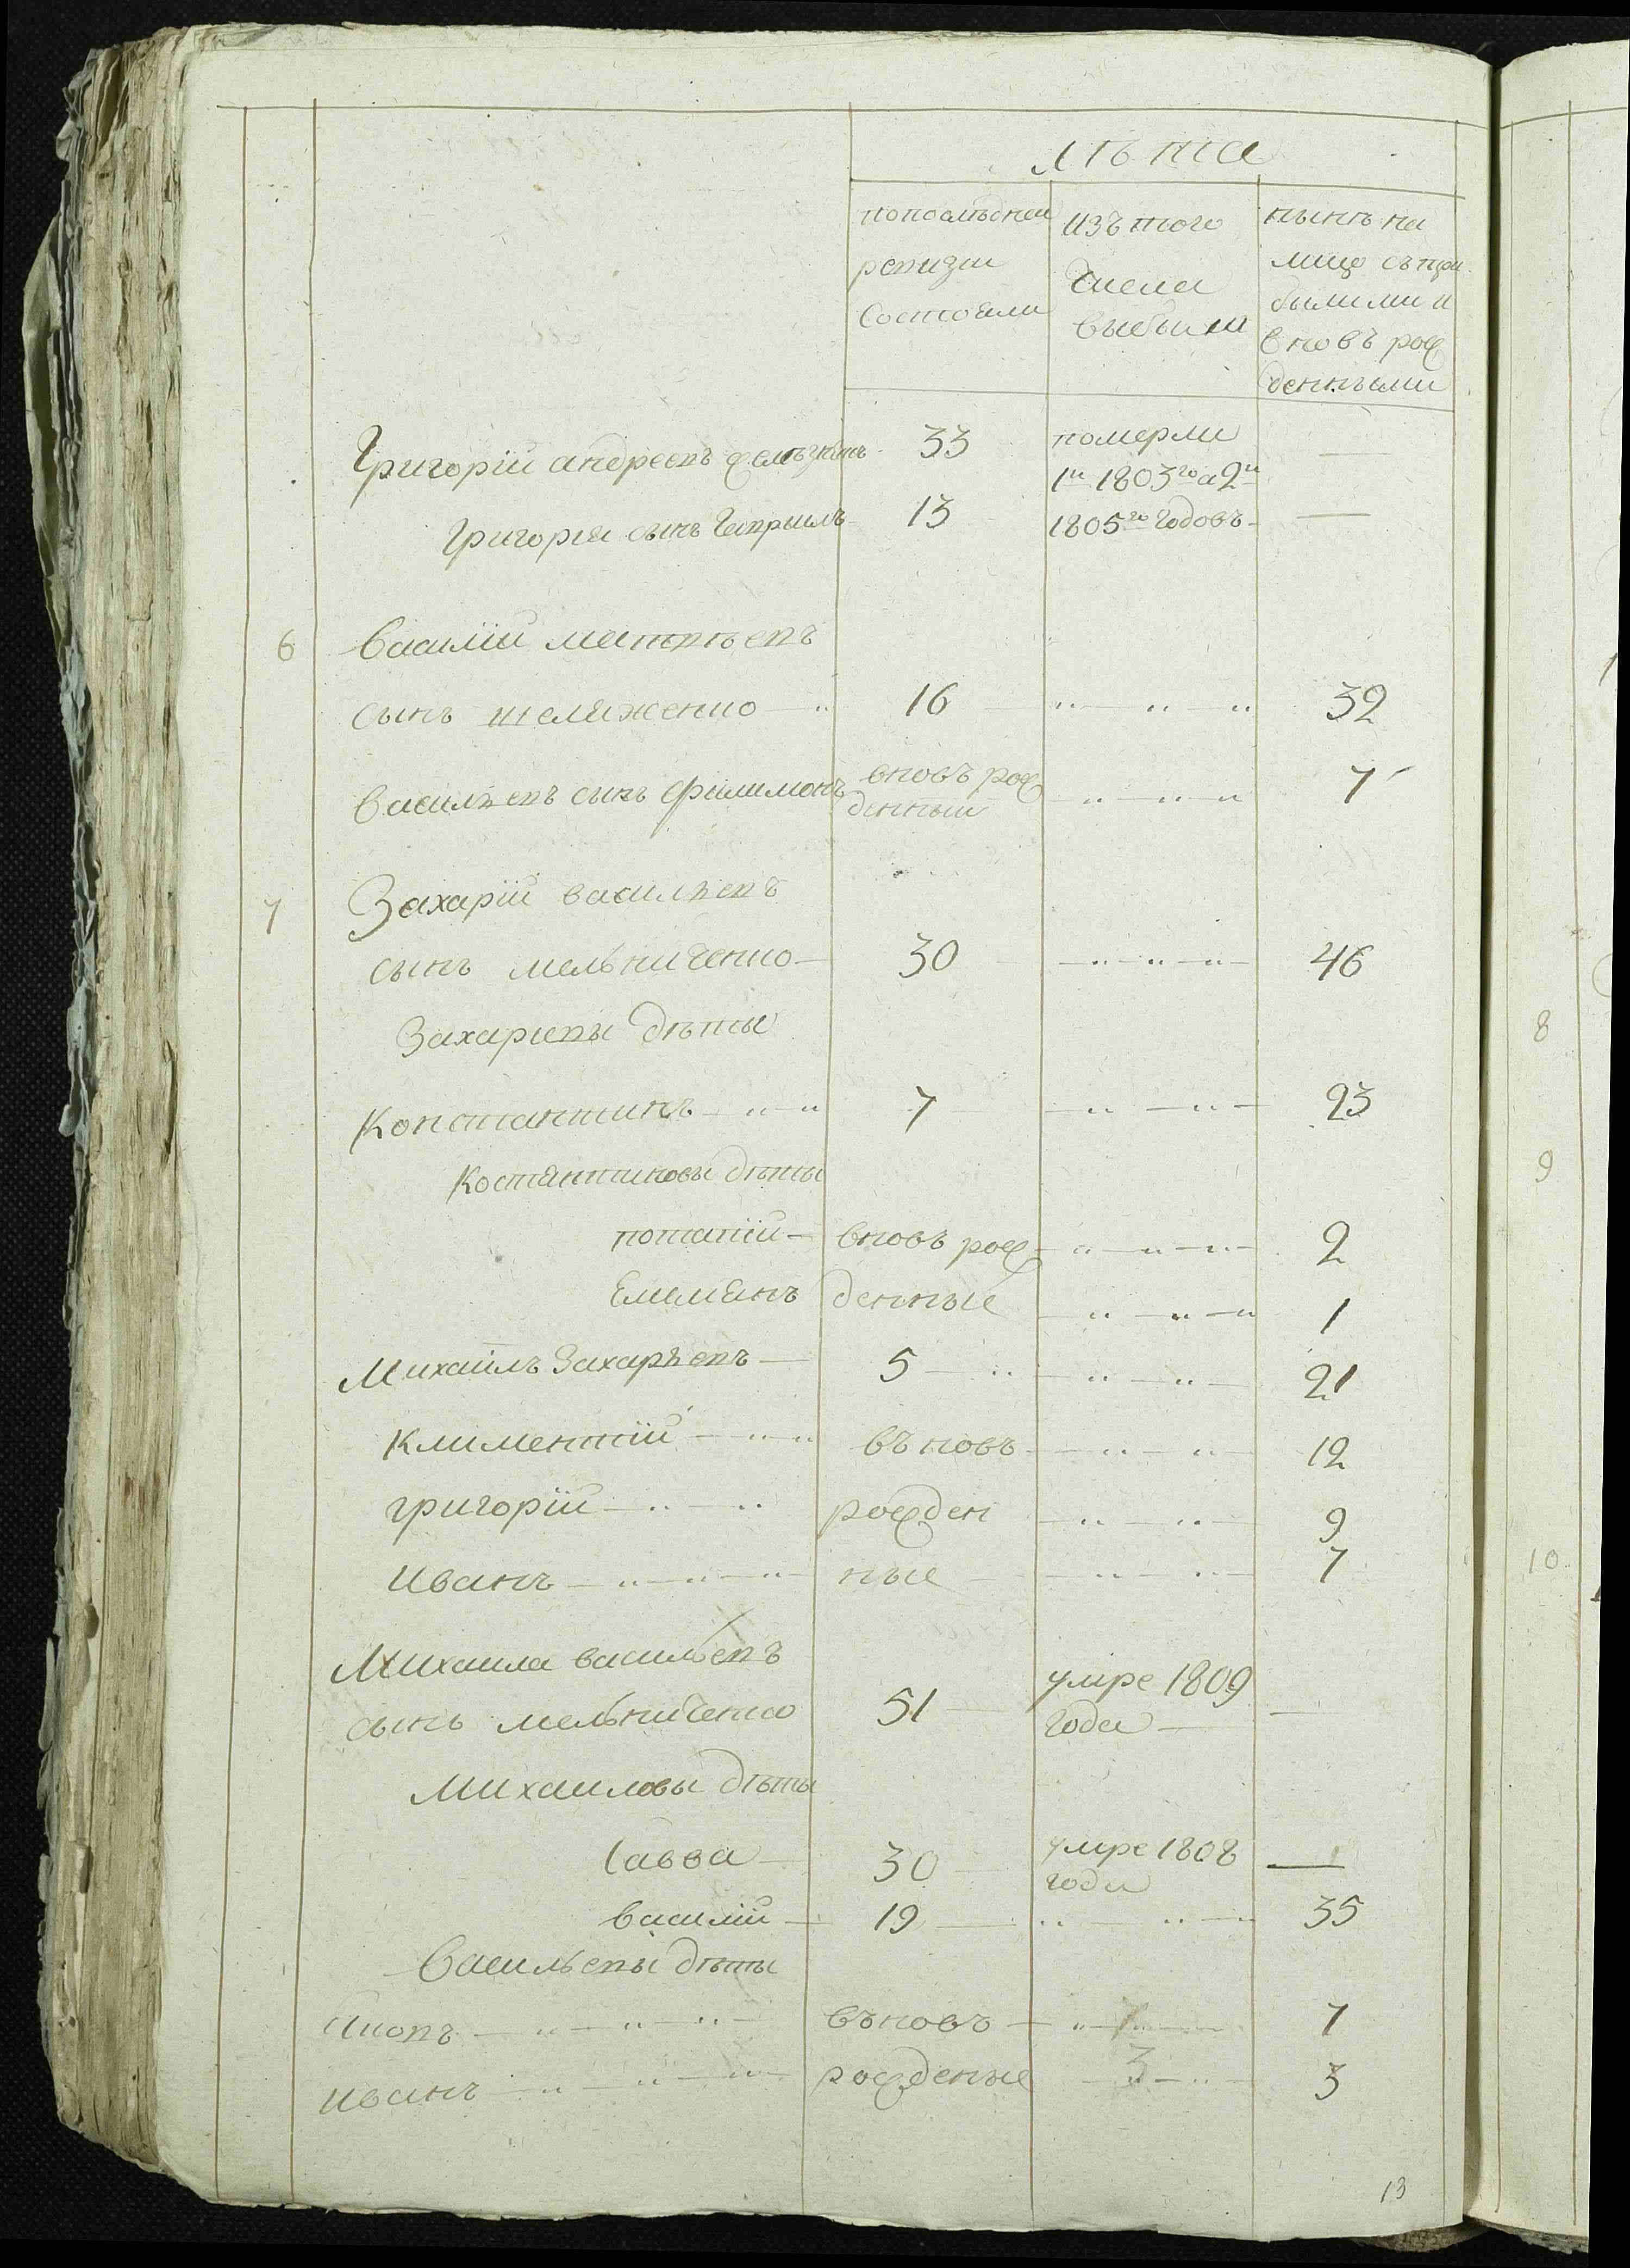 лѣта
попослѣдней ревизіи состояли
изъ того числа выбыли
нынѣ на лицо съ при былими и вновъ рож денными
Григорій андреевъ 33 померли —
1й 1803го а 2й
Григорія сынъ Гавріилъ 13 1805го годовъ —
6 василій матвѣевъ
сынъ шелиженко 16 32
васильевъ сынъ Филимонъ вновъ рож денный 7
7 Захарій васильевъ
сынъ мельниченко 30 46
Захариевы дѣты
Константинъ 7 23
Костянтиновы дѣты
потапій вновъ рож 2
Емелянъ денные 1
Михаилъ Захарьевъ 5 21
климентій въновъ 12
григорій рожден 9
иванъ ные 7
Михаила васильевъ
сынъ мельниченко 51 умре 1809 года —
михаиловы дѣты
савва 30 умре 1808 года —
василій 19 35
Васильевы дѣты
въновъ 7
иванъ рожденые 3 3
13
8
9
10